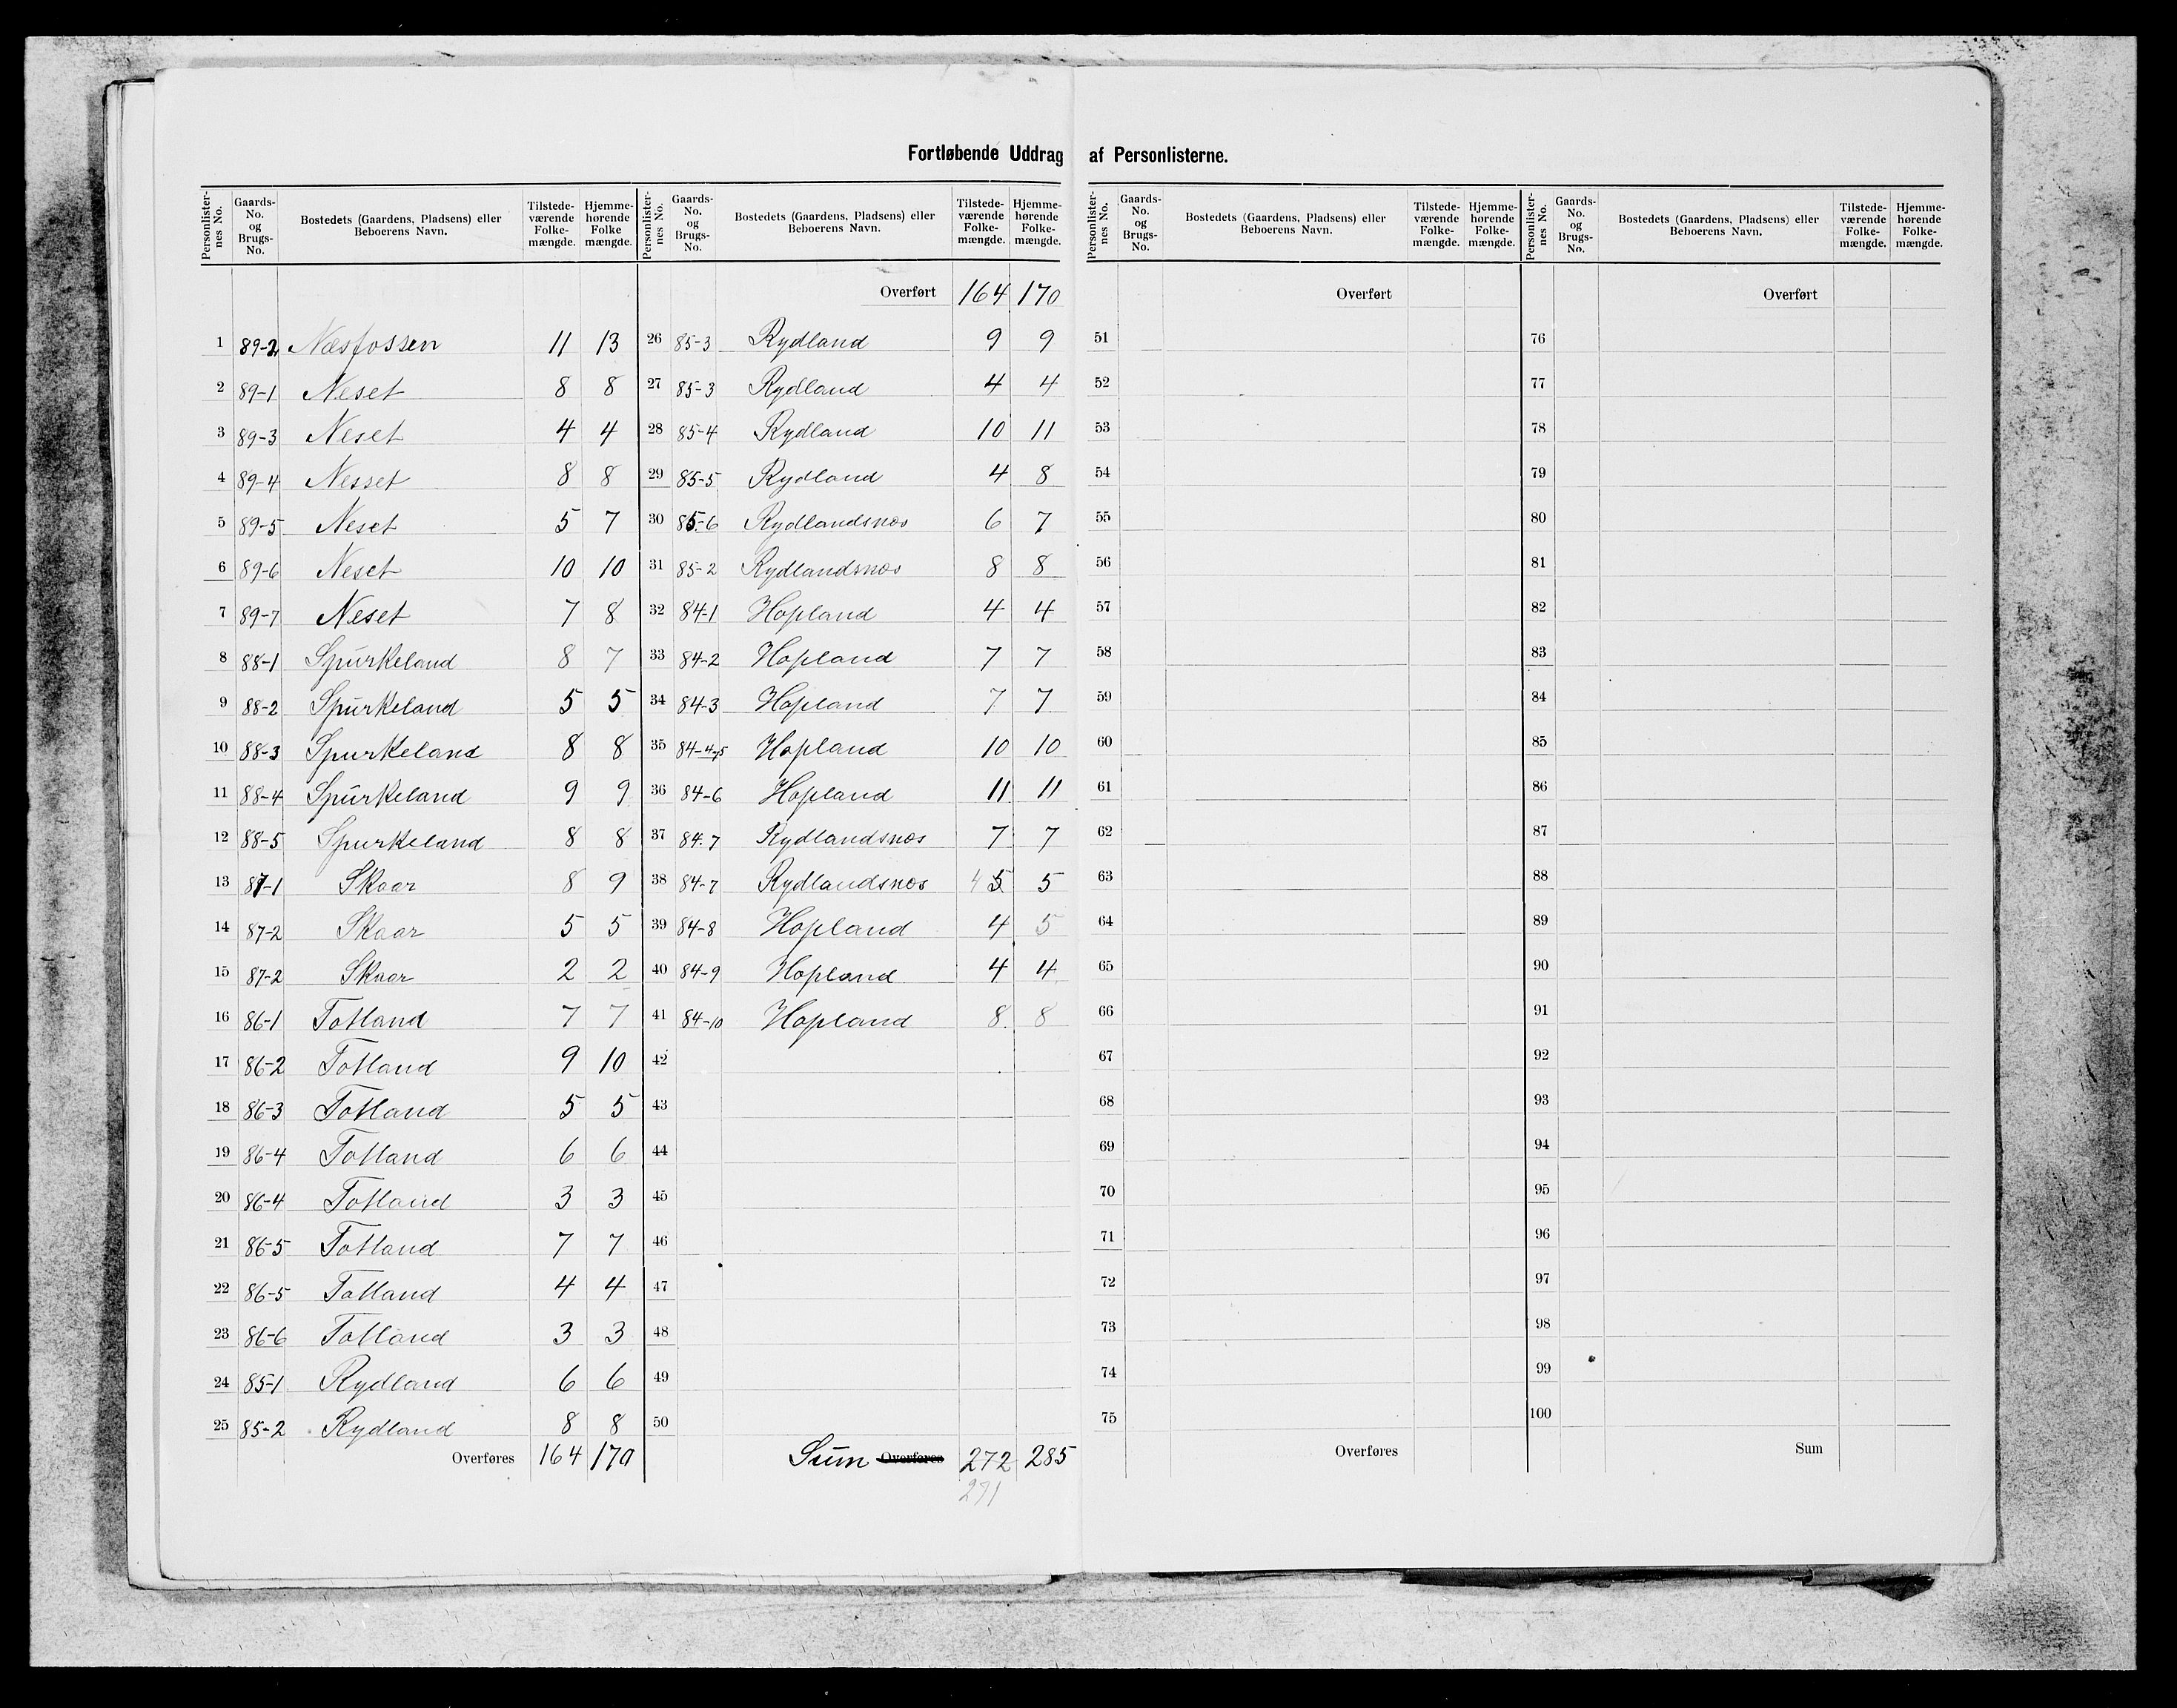 Fortløbende Uddrag af Personlisterne.
Personlisternes No. Gaards-No. og Brugs-No. Bostedets (Gaardens, Pladsens) eller Beboerens Navn. Tilstedeværende Folkemængde. Hjemmehørende Folkemængde.
1 89-2 Næsfossen 11 13
2 89-1 Neset 8 8
3 89-3 Neset 4 4
4 89-4 Nesset 8 8
5 89-5 Neset 5 7
6 89-6 Neset 10 10
7 89-7 Neset 7 8
8 88-1 Spŭrkeland 8 7
9 88-2 Spŭrkeland 5 5
10 88-3 Spurkeland 8 8
11 88-4 Spŭrkeland 9 9
12 88-5 Spurkeland 8 8
13 87-1 Skaar 8 9
14 87-2 Skaar 5 5
15 87-2 Skaar 2 2
16 86-1 Totland 7 7
17 86-2 Totland 9 10
18 86-3 Totland 5 5
19 86-4 Totland 6 6
20 86-4 Totland 3 3
21 86-5 Totland 7 7
22 86-5 Totland 4 4
23 86-6 Totland 3 3
24 85-1 Rydland 6 6
25 85-2 Rydland 8 8
Overføres 164 170
Personlisternes No. Gaards-No. og Brugs-No. Bostedets (Gaardens, Pladsens) eller Beboerens Navn. Tilstedeværende Folkemængde. Hjemmehørende Folkemængde.
Overført 164 170
26 85-3 Rydland 9 9
27 85-3 Rydland 4 4
28 85-4 Rydland 10 11
29 85-5 Rydland 4 8
30 85-6 Rydlandsnæs 6 7
31 85-2 Rydlandsnæs 8 8
32 84-1 Hopland 4 4
33 84-2 Hopland 7 7
34 84-3 Hopland 7 7
35 84-4+5 Hopland 10 10
36 84-6 Hopland 11 11
37 84.7 Rydlandsnæs 7 7
38 84-7 Rydlandsnæs 4 5 5
39 84-8 Hopland 4 5
40 84-9 Hopland 4 4
41 84-10 Hopland 8 8
42
43
44
45
46
47
48
49
50
Sŭm Overføres 272 285
271
Personlisternes No. Gaards-No. og Brugs-No. Bostedets (Gaardens, Pladsens) eller Beboerens Navn. Tilstedeværende Folkemængde. Hjemmehørende Folkemængde.
Overført
51
52
53
54
55
56
57
58
59
60
61
62
63
64
65
66
67
68
69
70
71
72
73
74
75
Overføres
Personlisternes No. Gaards-No. og Brugs-No. Bostedets (Gaardens, Pladsens) eller Beboerens Navn. Tilstedeværende Folkemængde. Hjemmehørende Folkemængde.
Overført
76
77
78
79
80
81
82
83
84
85
86
87
88
89
90
91
92
93
94
95
96
97
98
99
100
Sum